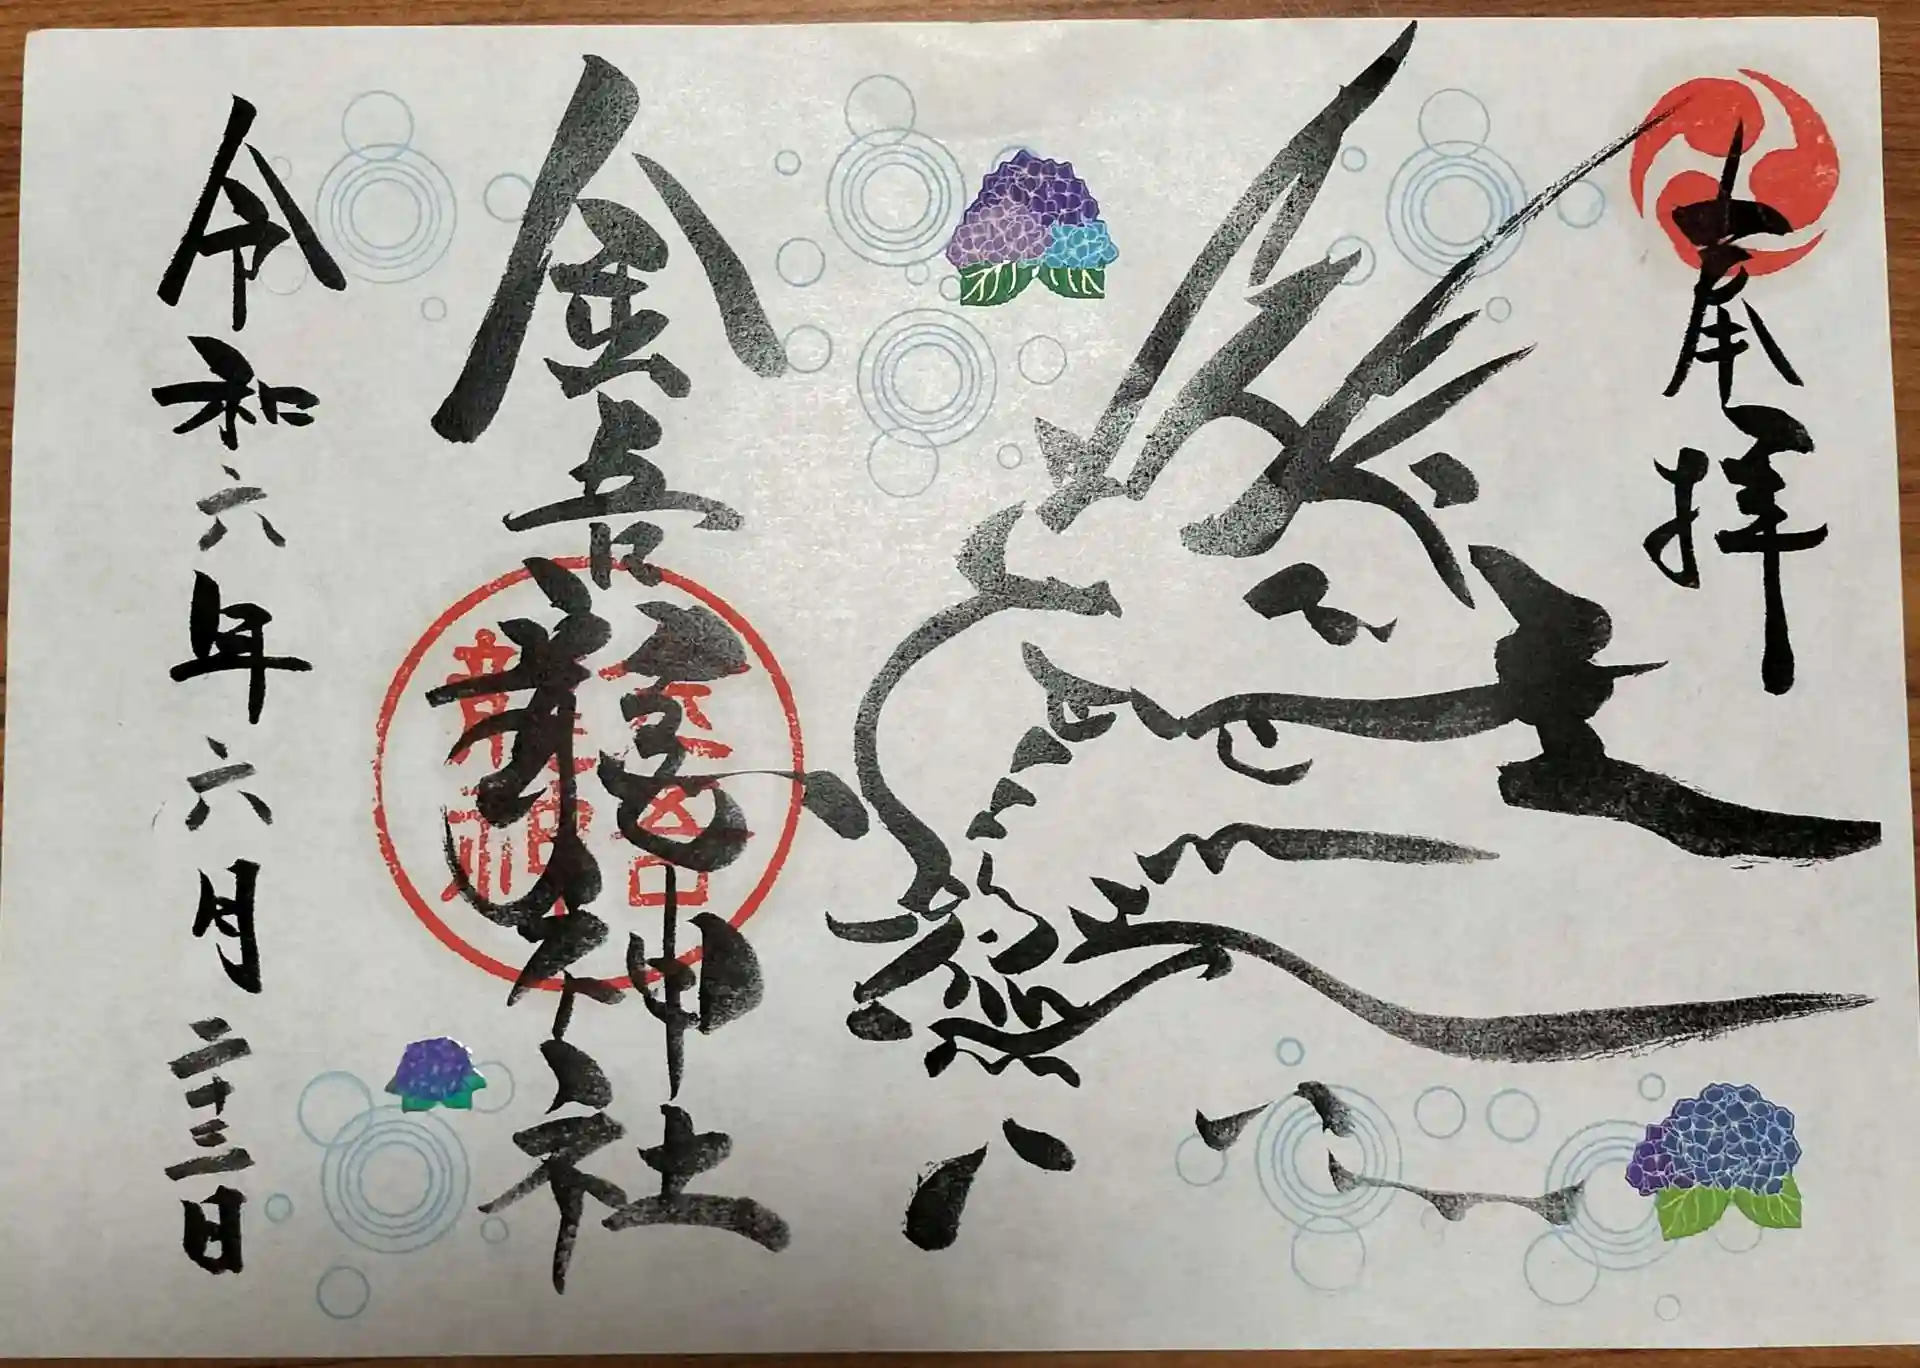 奉拝
金吾龍神社
金吾
龍神
令和六年六月二十三日